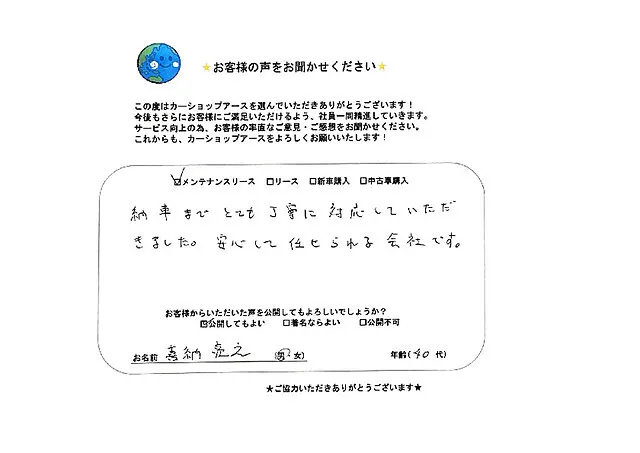 ★お客様の声をお聞かせください★
この度はカーショップアースを選んでいただきありがとうございます！
今後もさらにお客様にご満足いただけるよう、社員一同精進していきます。
サービス向上の為、お客様の率直なご意見・ご感想をお聞かせください。
これからも、カーショップアースをよろしくお願いいたします！
☑メンテナンスリース □リース □新車購入 □中古車購入
納車までとても丁寧に対応していただ
きました。安心して任せられる会社です。
お客様からいただいた声を公開してもよろしいでしょうか？
☑公開してもよい □署名ならよい □公開不可
お名前 喜納 (男・女) 年齢(40代)
★ご協力いただきありがとうございます★